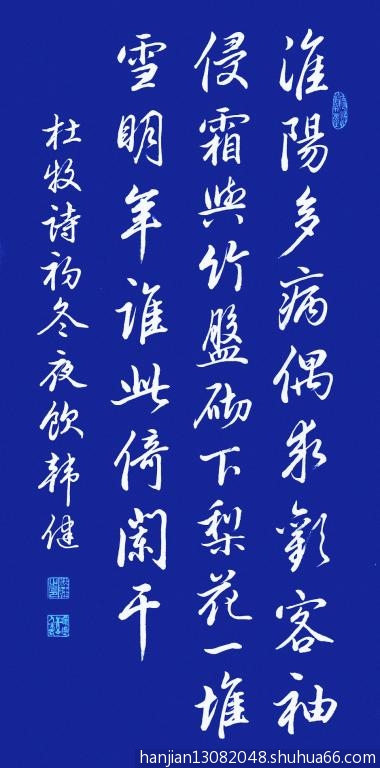 淮陽多病偶求歡客袖
侵霜與竹盤砌下梨花一堆
雪明年誰此倚闌干
杜牧詩初冬夜飲韓健
hanjian13082048.shuhua66.com